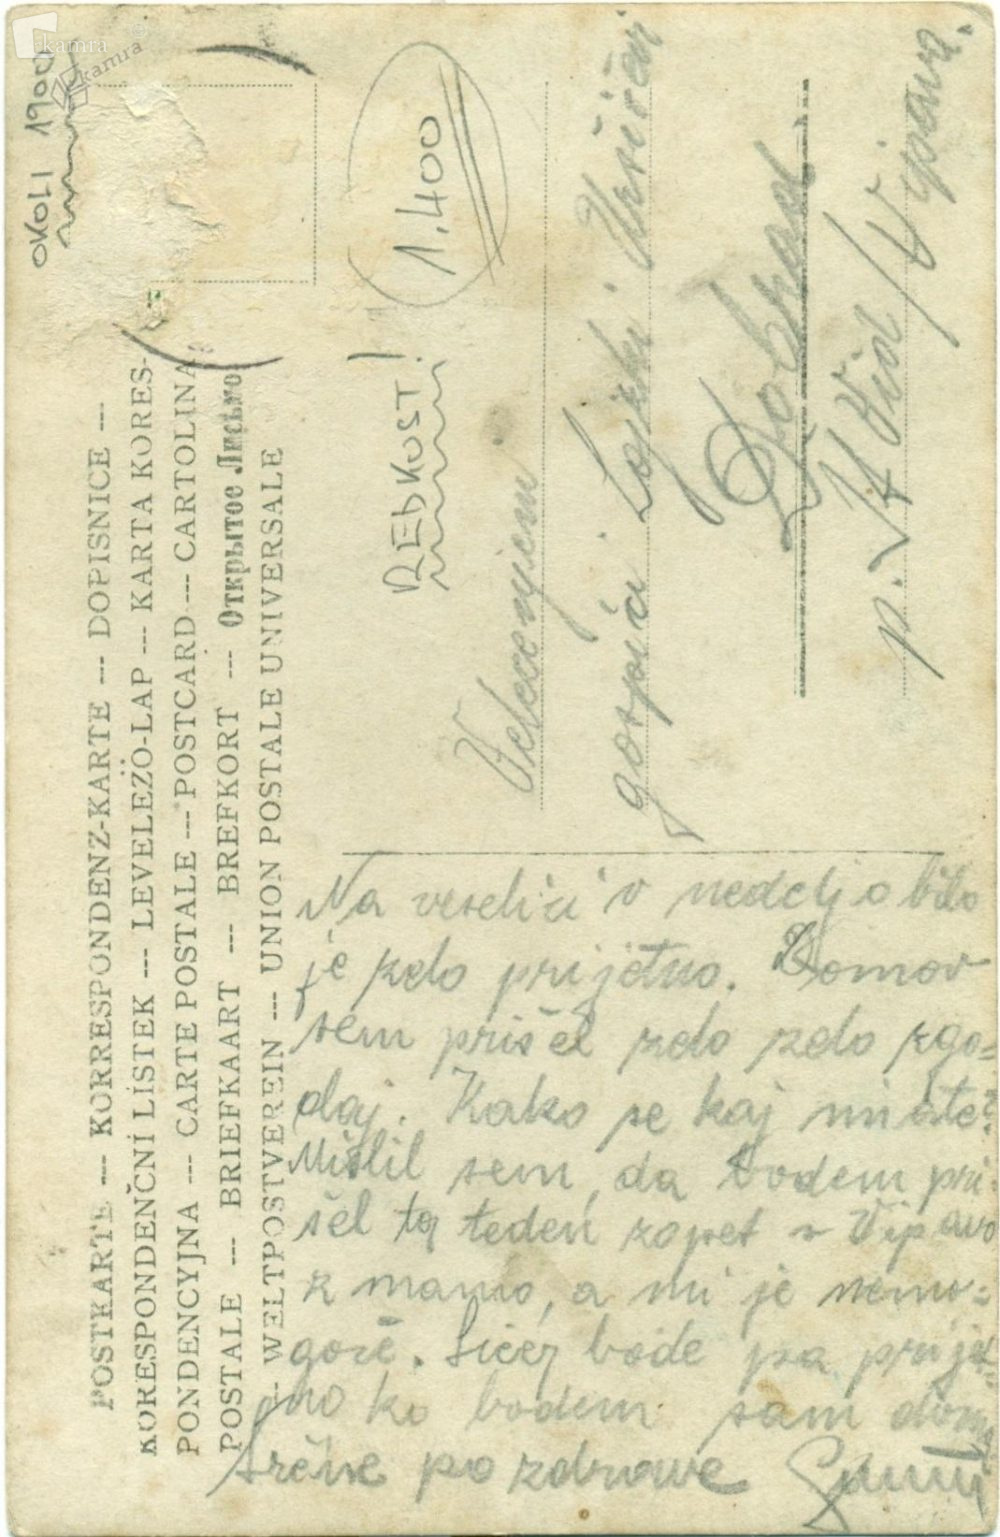 kamra
kamra
OKOLI 1900
REDKOST!
1.400
POSTKARTE --- KORRESPONDENZ-KARTE --- DOPISNICE ---
KORESPONDENČNÍ LÍSTEK --- LEVELEZŐ-LAP --- KARTA KORES-
PONDENCYJNA --- CARTE POSTALE --- POSTCARD --- CARTOLINA
POSTALE --- BRIEFKAART --- BREFKORT --- Открытое Письмо
--- WELTPOSTVEREIN --- UNION POSTALE UNIVERSALE
Velecenjeni
gospici Lojzki Uršičevi
p. St Vid / Vipava.
Na veselici v nedeljo bilo
je zelo prijetno. Domov
sem prišel zelo zelo zgo=
daj. Kako se kaj imate?
Mislil sem, da bodem pri
šel ta teden zopet v Vipavo
z mamo, a mi je nemo=
goče. Sicer bode pa prijet
no ko bodem sam doma
Srčne pozdrave